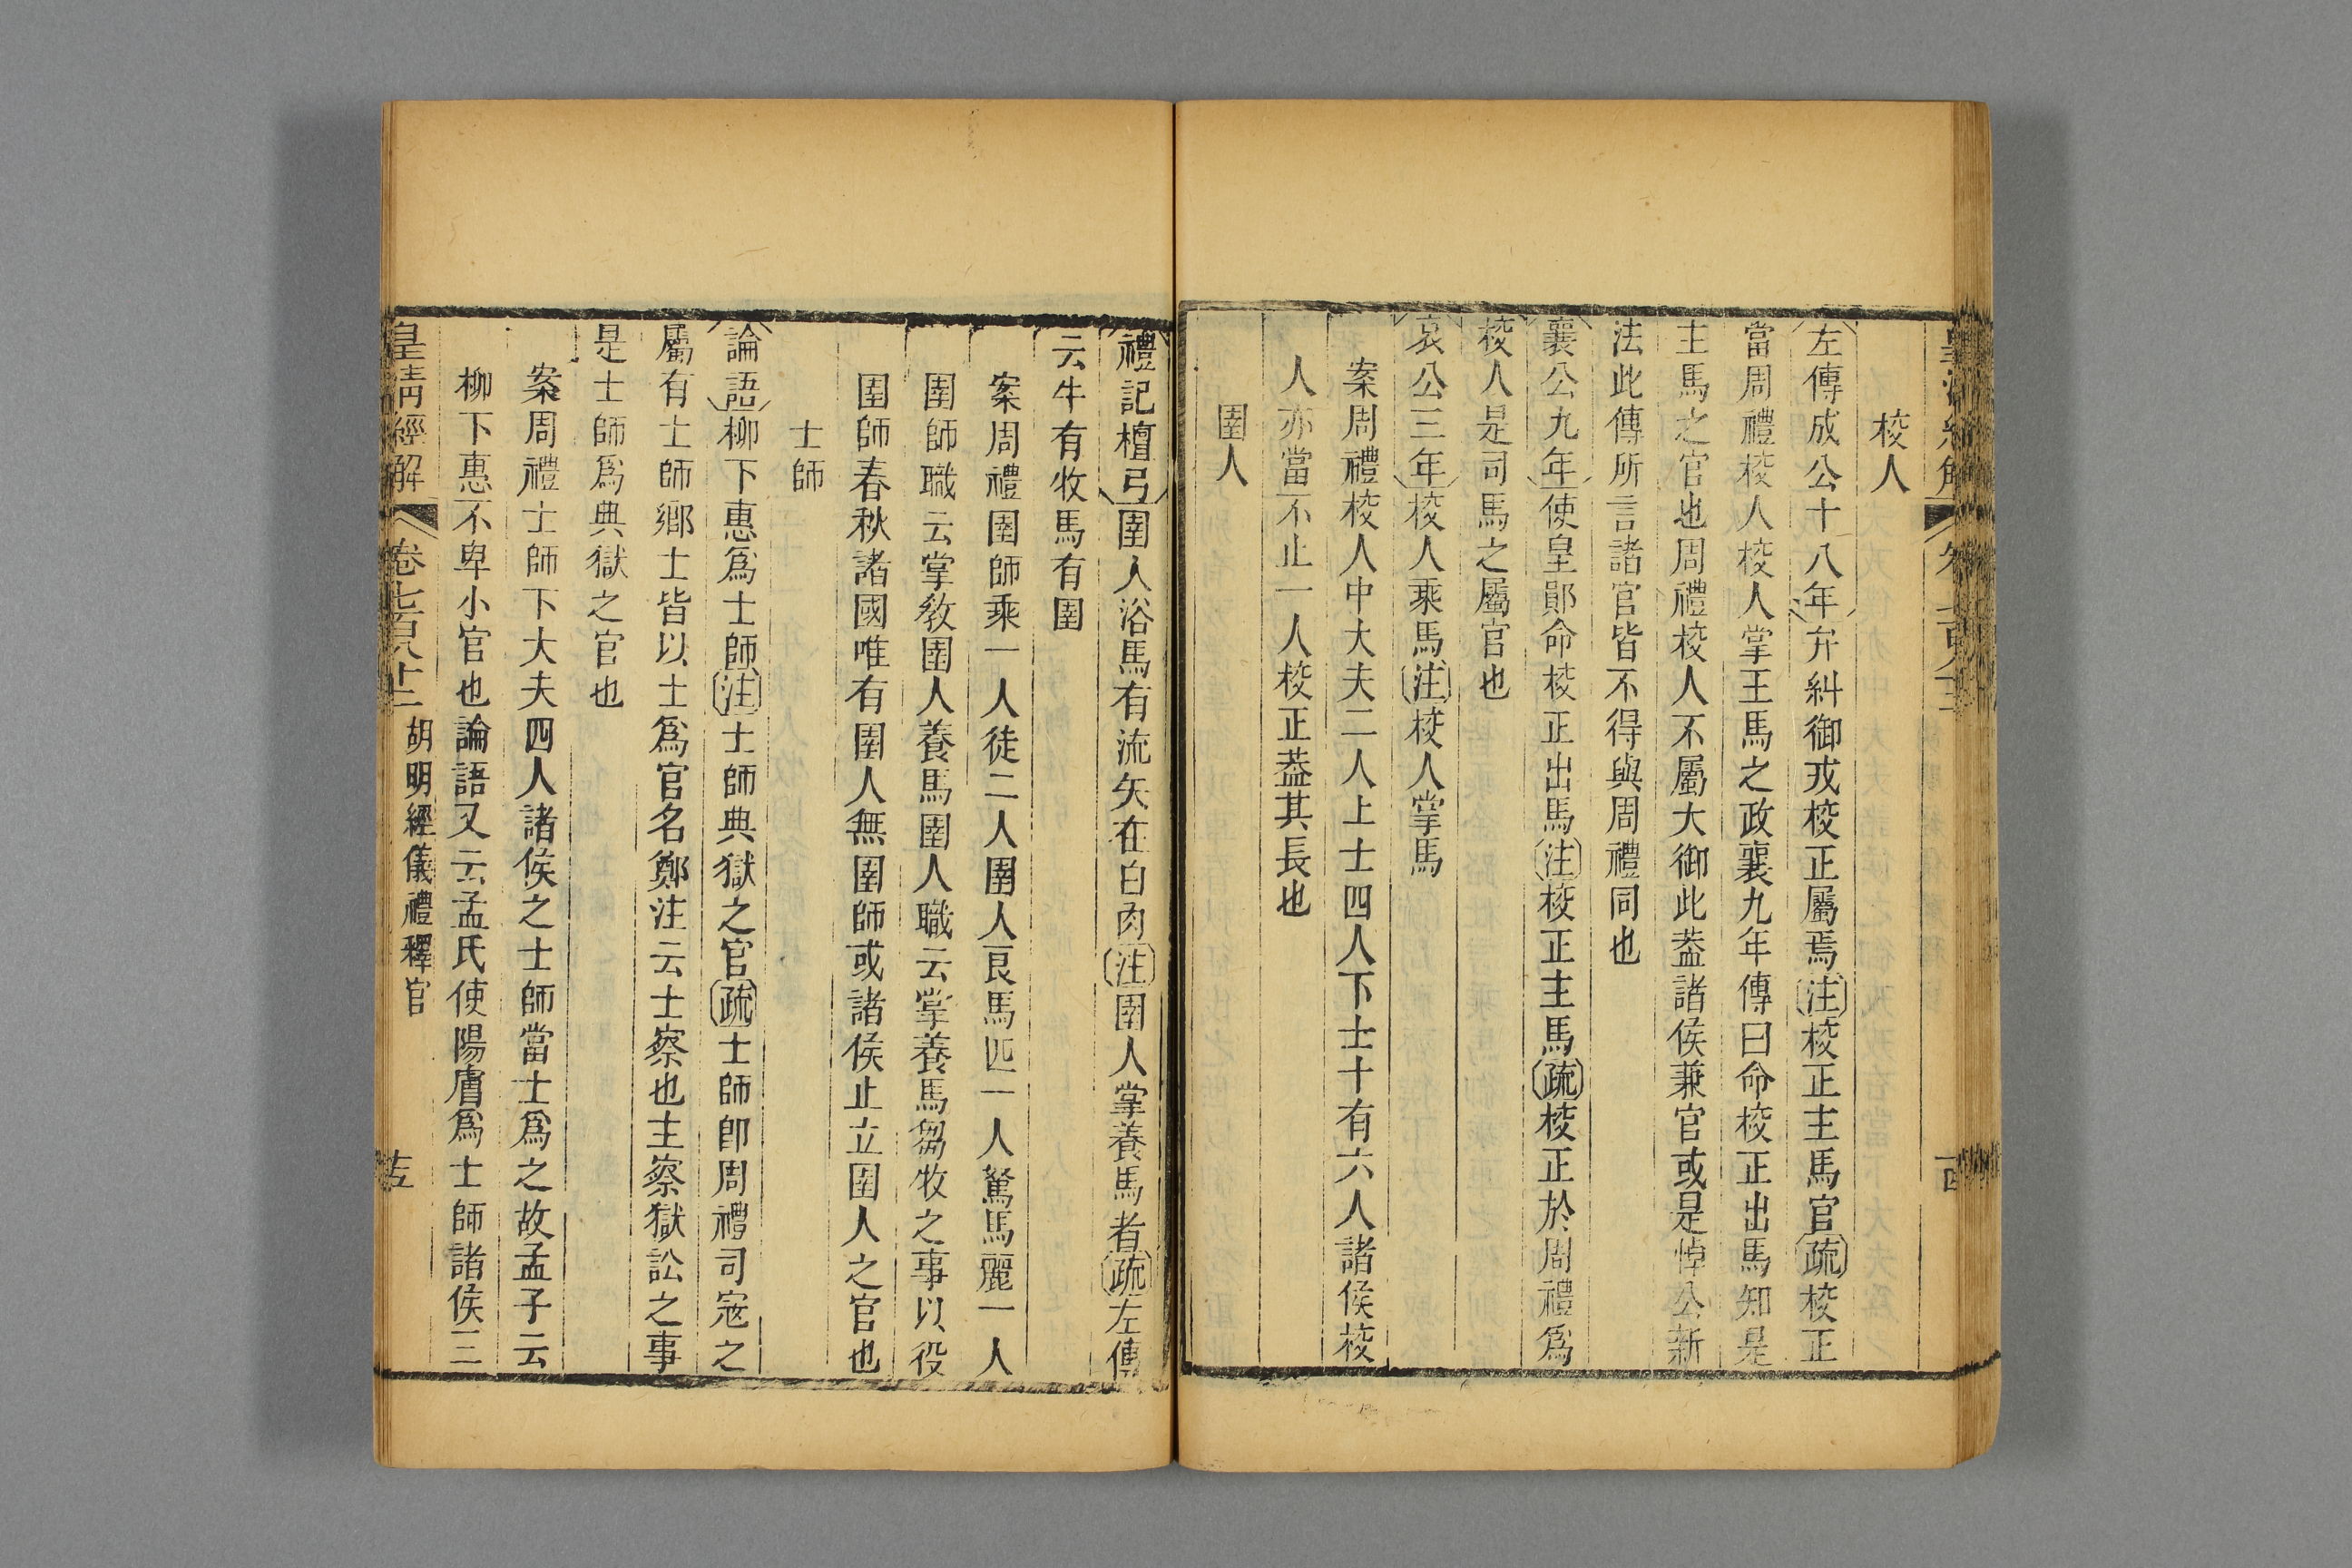 校人
左傳成公十八年弁糾御戎校正屬焉注校正主馬官疏校正
當周禮校人校人掌王馬之政襄九年傳曰命校正出馬知是
主馬之官也周禮校人不屬大御此葢諸侯兼官或是悼公新
法此傳所言諸官皆不得與周禮同也
襄公九年使皇鄖命校正出馬注校正主馬疏校正於周禮爲
校人是司馬之屬官也
哀公三年校人乘馬注校人掌馬
案周禮校人中大夫二人上士四人下士十有六人諸侯校
人亦當不止一人校正葢其長也
圉人
禮記檀弓圉人浴馬有流矢在白肉注圉人掌養馬者疏左傳
云牛有牧馬有圉
案周禮圉師乘一人徒二人圉人良馬匹一人駑馬麗一人
圉師職云掌敎圉人養馬圉人職云掌養馬芻牧之事以役
圉師春秋諸國唯有圉人無圉師或諸侯止立圉人之官也
士師
論語柳下惠爲士師注士師典獄之官疏士師卽周禮司寇之
屬有士師鄉士皆以士爲官名鄭注云士察也主察獄訟之事
是士師爲典獄之官也
案周禮士師下大夫四人諸侯之士師當士爲之故孟子云
柳下惠不卑小官也論語又云孟氏使陽膚爲士師諸侯三
皇淸經解 卷七百八十二 胡明經儀禮釋官